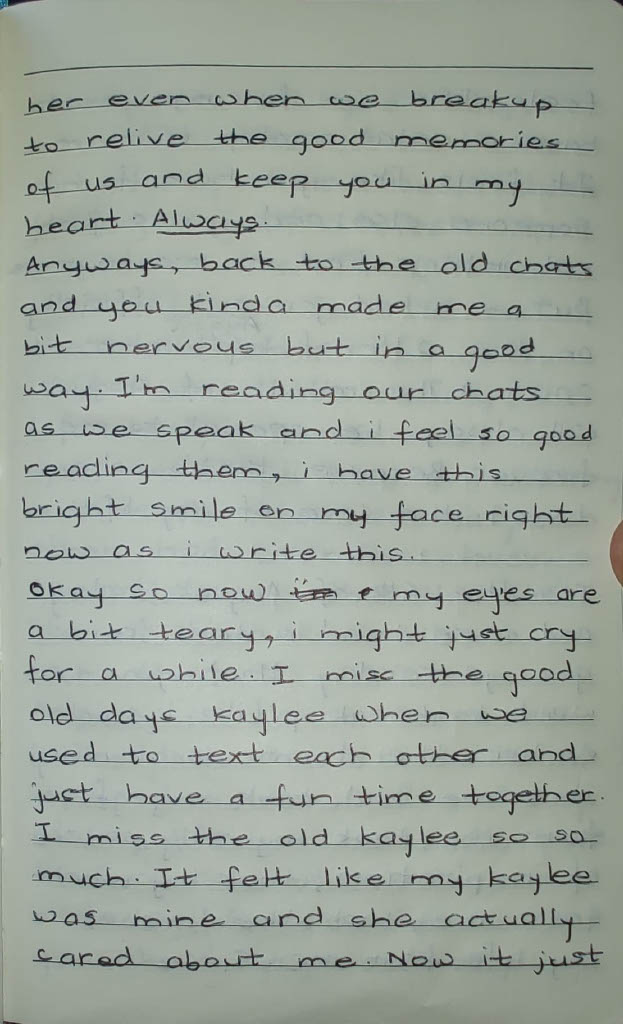 her even when we breakup
to relive the good memories
of us and keep you in my
heart. Always.
Anyways, back to the old chats
and you kinda made me a
bit nervous but in a good
way. I'm reading our chats
as we speak and i feel so good
reading them, i have this
bright smile on my face right
now as i write this.
Okay so now my eyes are
a bit teary, i might just cry
for a while. I miss the good
old days kaylee when we
used to text each other and
just have a fun time together.
I miss the old kaylee so so
much. It felt like my kaylee
was mine and she actually
cared about me. Now it just